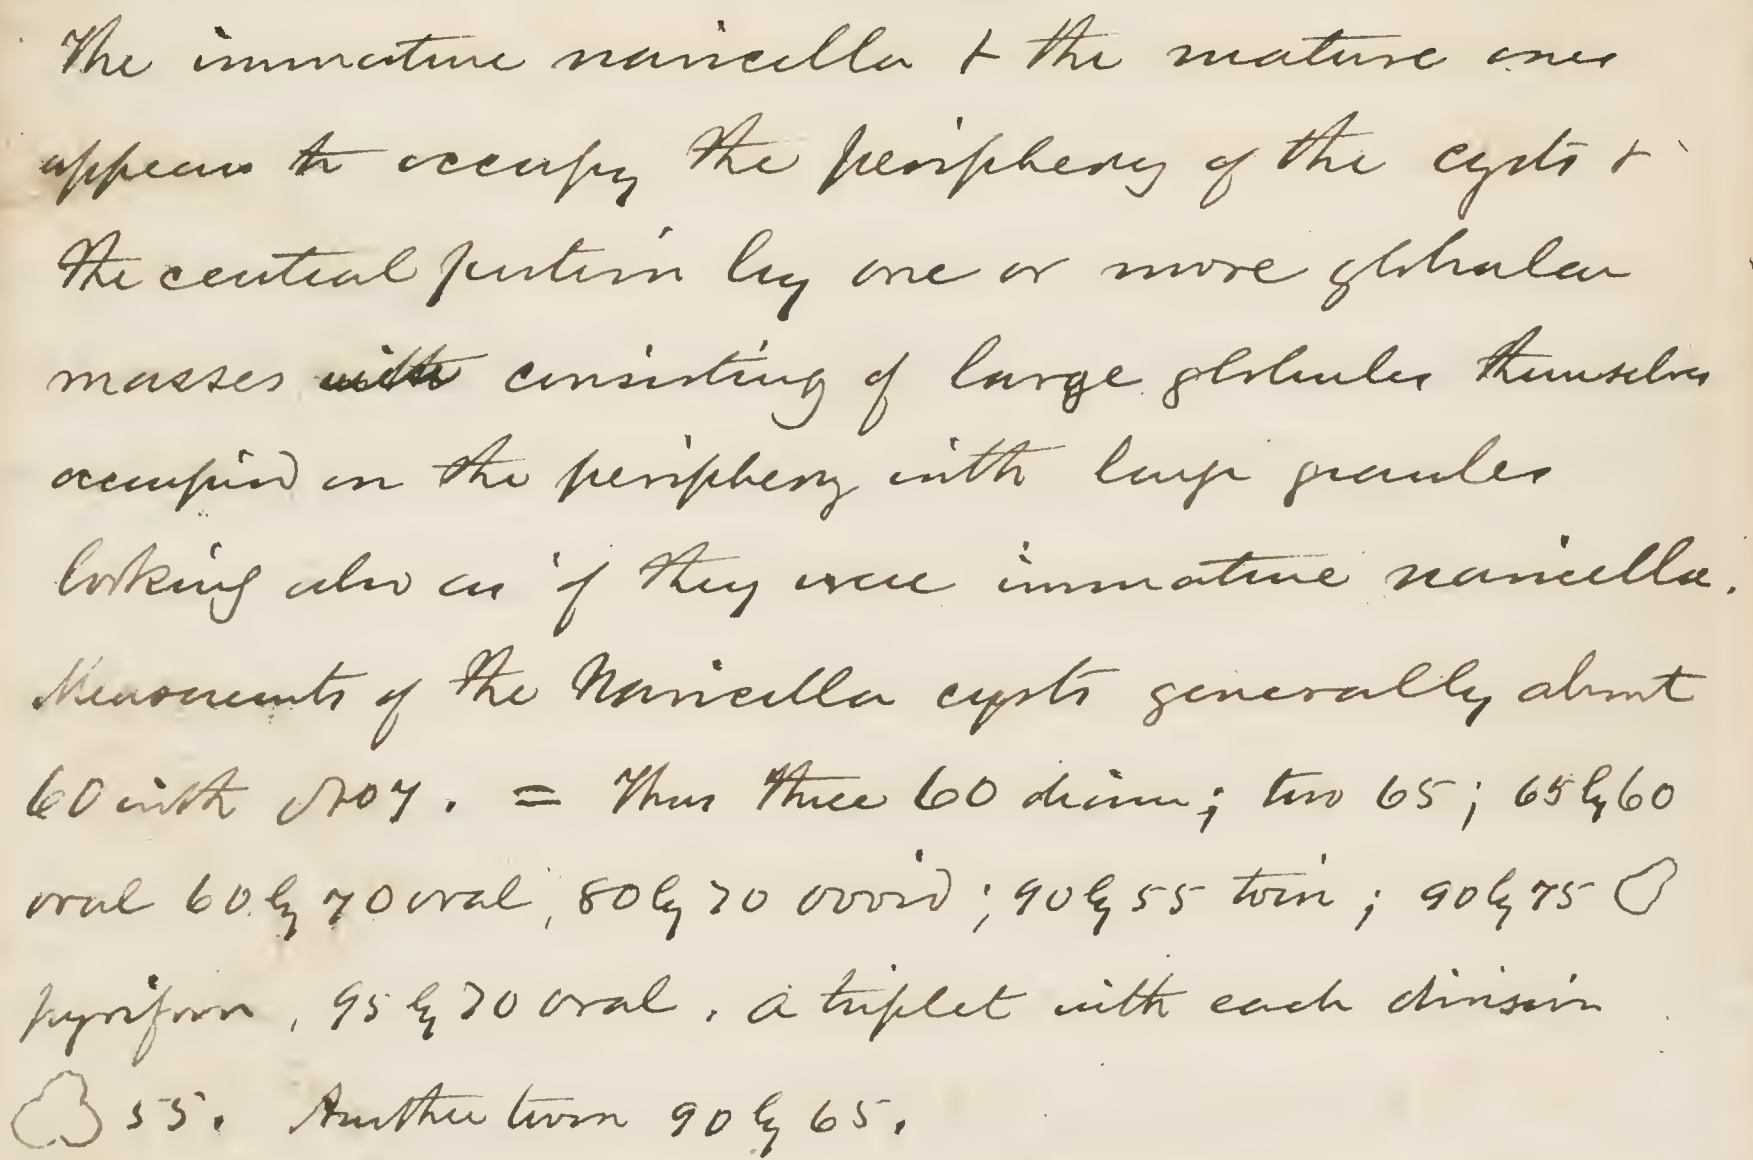 The immature navicella & the mature ones
appear to occupy the periphery of the cysts &
the central portion by one or more globular
masses with consisting of large globules themselves
occupied on the periphery with large granules
looking also as if they were immature navicella.
Measurements of the Navicella cysts generally about
60 with . = Thus three 60 diam; two 65; 65 by 60
oval 60 by 70 oval, 80 by 70 ovoid; 90 by 55 twin; 90 by 75
pyriform, 95 by 70 oval. A triplet with each division
55. Another twin 90 by 65.